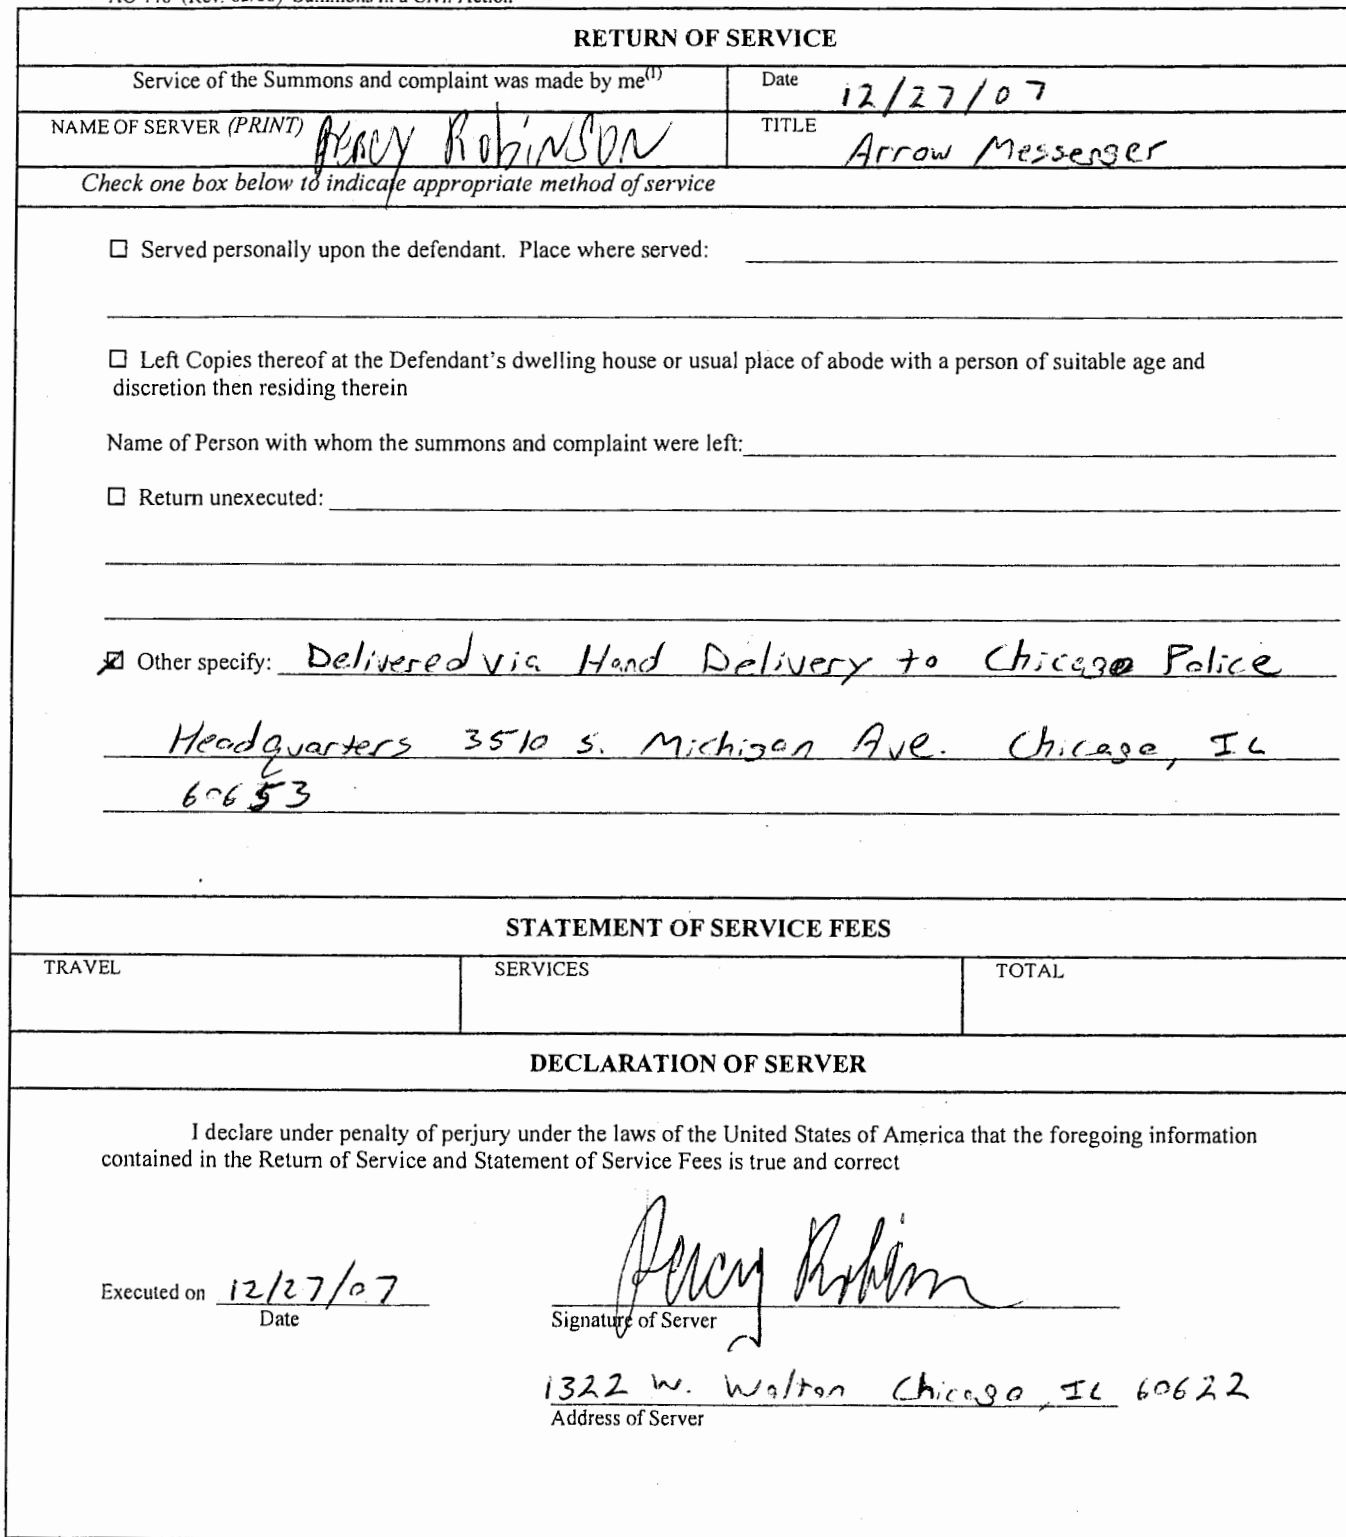 RETURN OF SERVICE
Service of the Summons and complaint was made by me(1)
Date 12/27/07
NAME OF SERVER (PRINT) Percy Robinson
TITLE Arrow Messenger
Check one box below to indicate appropriate method of service
☐ Served personally upon the defendant. Place where served:
☐ Left Copies thereof at the Defendant's dwelling house or usual place of abode with a person of suitable age and
discretion then residing therein
Name of Person with whom the summons and complaint were left:
☐ Return unexecuted:
☑ Other specify: Delivered via Hand Delivery to Chicago Police
Headquarters 3510 S. Michigan Ave. Chicago, IL
60653
STATEMENT OF SERVICE FEES
TRAVEL
SERVICES
TOTAL
DECLARATION OF SERVER
I declare under penalty of perjury under the laws of the United States of America that the foregoing information
contained in the Return of Service and Statement of Service Fees is true and correct
Executed on 12/27/07
Date
Percy Robinson
Signature of Server
1322 W. Walton Chicago, IL 60622
Address of Server